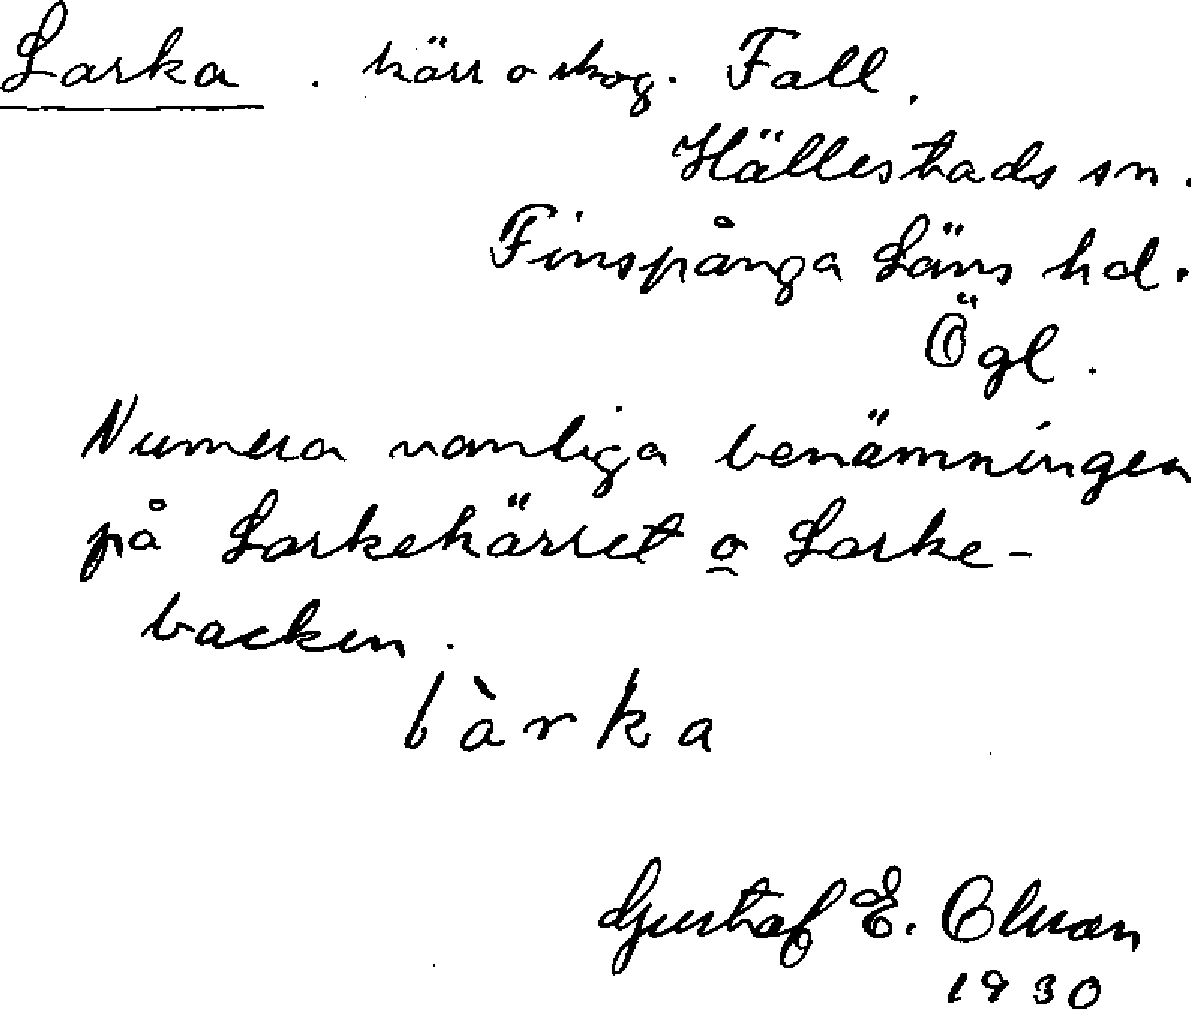 Larka . kärr o skog. Fall.
Hällestads sn.
Finspånga Läns hd.
Ögl.
Numera vanliga benämningen
på Larkekärret o Larke-
backen.
làrka
Gustaf E.
1930